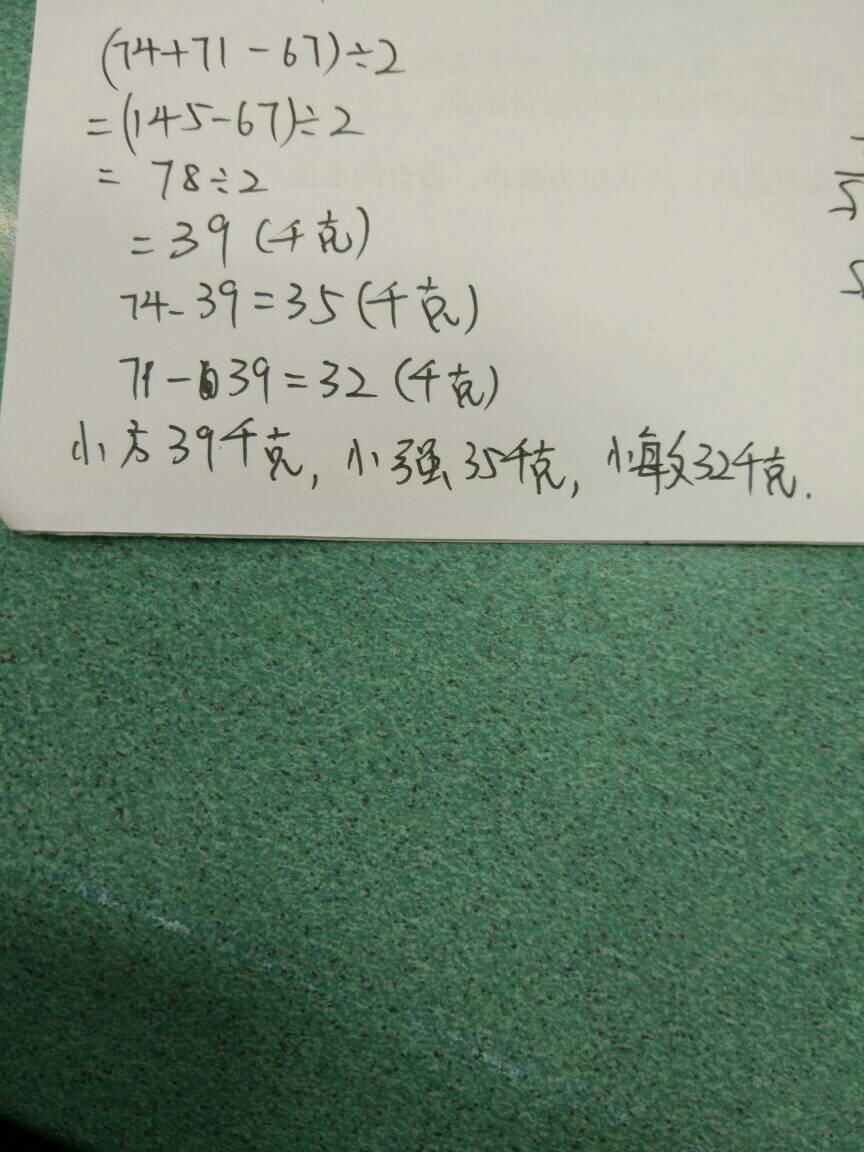 (74+71-67)÷2
=(145-67)÷2
= 78÷2
=39(千克)
74-39=35(千克)
71-39=32(千克)
小方39千克,小强35千克,小敏32千克.